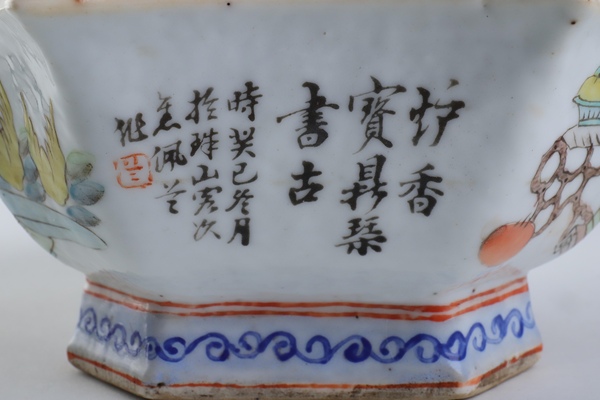 炉香
寶鼎琴
書古
時癸巳冬月
於珠山客次
焦佩兰
作